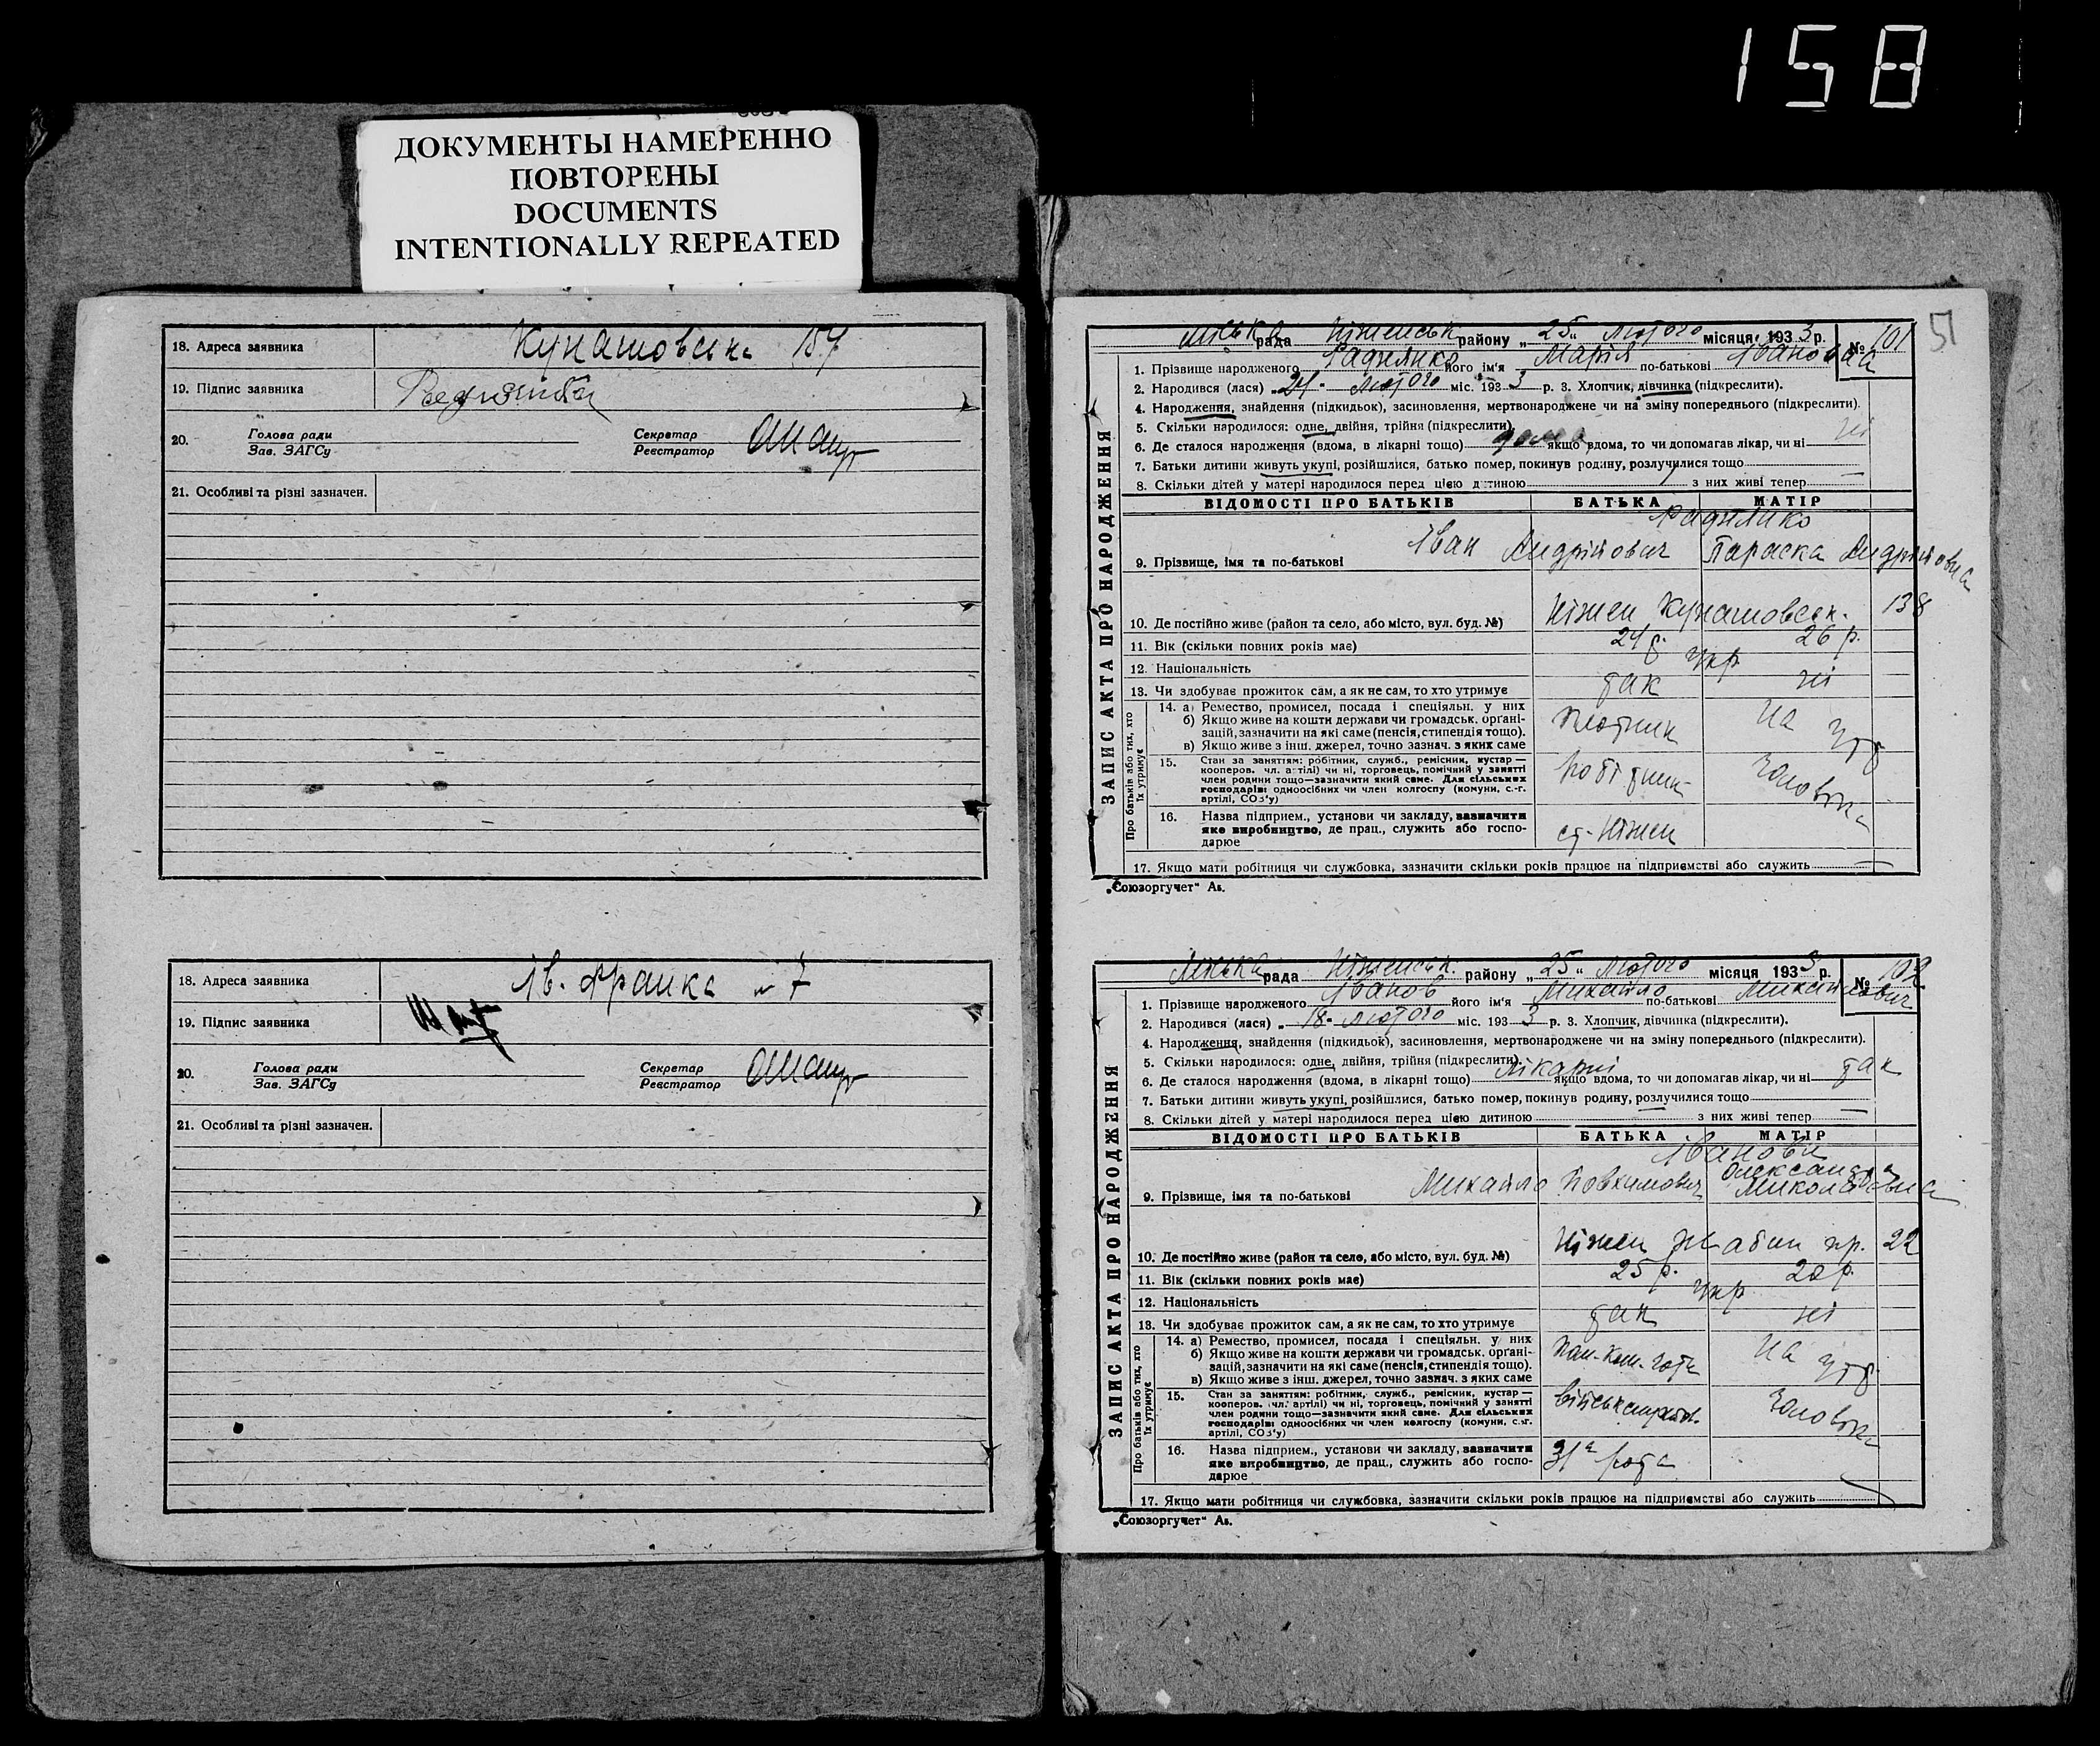 158
ДОКУМЕНТЫ НАМЕРЕННО
ПОВТОРЕНЫ
DOCUMENTS
INTENTIONALLY REPEATED
18. Адреса заявника
19. Підпис заявника
20. Голова ради Секретар
Зав. ЗАГСу Реєстратор
21. Особливі та різні зазначен.
18. Адреса заявника Ів. Франка № 7
19. Підпис заявника
20. Голова ради Секретар
Зав. ЗАГСу Реєстратор
21. Особливі та різні зазначен.
51
ЗАПИС АКТА ПРО НАРОДЖЕННЯ
Міська рада Ніженськ. району „25“ лютого місяця 1933 р. № 101
1. Прізвище народженого його ім'я Марія по-батькові Іванівна
2. Народився (лася) „ лютого міс. 1933 р. 3. Хлопчик, дівчинка (підкреслити).
4. Народження, знайдення (підкидьок), засиновлення, мертвонароджене чи на зміну попереднього (підкреслити).
5. Скільки народилося: одне, двійня, трійня (підкреслити)
6. Де сталося народження (вдома, в лікарні тощо) дома якщо вдома, то чи допомагав лікар, чи ні ні
7. Батьки дитини живуть укупі, розійшлися, батько помер, покинув родину, розлучилися тощо
8. Скільки дітей у матері народилося перед цією дитиною з них живі тепер —
ВІДОМОСТІ ПРО БАТЬКІВ БАТЬКА МАТІР
9. Прізвище, імя та по-батькові Іван Андрійович Параска Андрійовна
10. Де постійно живе (район та село, або місто, вул. буд. №) Ніжен Кунашовськ. 138
11. Вік (скільки повних років має) 26 р.
12. Національність укр
13. Чи здобуває прожиток сам, а як не сам, то хто утримує так ні
Про батьків або тих, хто їх утримує
14. а) Ремество, промисел, посада і спеціяльн. у них плотник на утр
б) Якщо живе на кошти держави чи громадськ. органі-
зацій, зазначити на які саме (пенсія, стипендія тощо).
в) Якщо живе з інш. джерел, точно зазнач. з яких саме
15. Стан за заняттям: робітник, служб., ремісник, кустар — робітник
кооперов. чл. артілі) чи ні, торговець, помічний у занятті
член родини тощо—зазначити який саме. Для сільських
господарів: одноосібних чи член колгоспу (комуни, с.-г.
артілі, СОЗ'у)
16. Назва підприєм., установи чи закладу, зазначити ст. Ніжен
яке виробництво, де прац., служить або госпо-
дарює
17. Якщо мати робітниця чи службовка, зазначити скільки років працює на підприємстві або служить —
„Союзоргучет“
ЗАПИС АКТА ПРО НАРОДЖЕННЯ
Міська рада Ніженськ. району „25“ лютого місяця 1933 р. № 102
1. Прізвище народженого Іванов його ім'я Михайло по-батькові Михайлович
2. Народився (лася) „18“ лютого міс. 1933 р. 3. Хлопчик, дівчинка (підкреслити).
4. Народження, знайдення (підкидьок), засиновлення, мертвонароджене чи на зміну попереднього (підкреслити).
5. Скільки народилося: одне, двійня, трійня (підкреслити)
6. Де сталося народження (вдома, в лікарні тощо) лікарні якщо вдома, то чи допомагав лікар, чи ні так
7. Батьки дитини живуть укупі, розійшлися, батько помер, покинув родину, розлучилися тощо
8. Скільки дітей у матері народилося перед цією дитиною з них живі тепер —
ВІДОМОСТІ ПРО БАТЬКІВ БАТЬКА МАТІР
Іванови
9. Прізвище, імя та по-батькові Михайло Олександра
10. Де постійно живе (район та село, або місто, вул. буд. №) Ніжен 22
11. Вік (скільки повних років має) 25 р. 20 р.
12. Національність укр
13. Чи здобуває прожиток сам, а як не сам, то хто утримує так ні
Про батьків або тих, хто їх утримує
14. а) Ремество, промисел, посада і спеціяльн. у них на утр.
б) Якщо живе на кошти держави чи громадськ. органі-
зацій, зазначити на які саме (пенсія, стипендія тощо).
в) Якщо живе з інш. джерел, точно зазнач. з яких саме
15. Стан за заняттям: робітник, служб., ремісник, кустар —
кооперов. чл. артілі) чи ні, торговець, помічний у занятті
член родини тощо—зазначити який саме. Для сільських
господарів: одноосібних чи член колгоспу (комуни, с.-г.
артілі, СОЗ'у)
16. Назва підприєм., установи чи закладу, зазначити 31а рота
яке виробництво, де прац., служить або госпо-
дарює
17. Якщо мати робітниця чи службовка, зазначити скільки років працює на підприємстві або служить
„Союзоргучет“